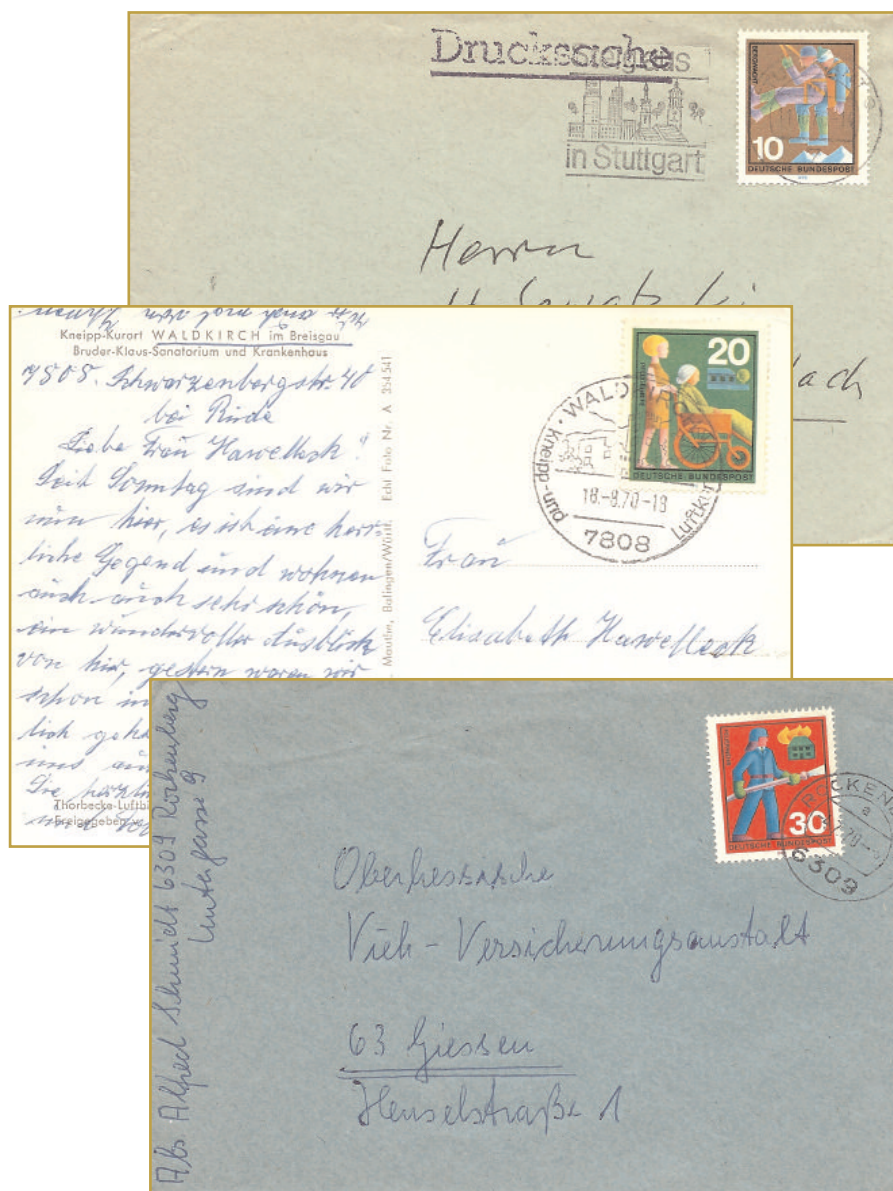 Drucksache
in Stuttgart
10
DEUTSCHE BUNDESPOST
Herrn
lach
Kneipp-Kurort WALDKIRCH im Breisgau
Bruder-Klaus-Sanatorium und Krankenhaus
Schwarzenbergstr. 40
bei
Liebe Frau Hawelleck!
Seit Sonntag sind wir
nun hier, es ist eine herr-
liche Gegend und wohnen
auch auch sehr schön,
ein wundervoller Ausblick
von hier, gestern waren wir
schon in
lich
uns
Die
Thorbecke-Luftbi
Freigegeben
Mauthe, Balingen/Württ. Echt Foto Nr. A 354 541
20
DEUTSCHE BUNDESPOST
WALD
Kneipp-und
Luftku
18.-8.70-18
7808
Frau
Elisabeth Hawelleck
Abs. Alfred Schmidt 6309 Rockenberg
Untergasse 9
30
DEUTSCHE BUNDESPOST
ROCKENB
a
6309
Oberhessische
Vieh-Versicherungsanstalt
63 Giessen
Henselstraße 1